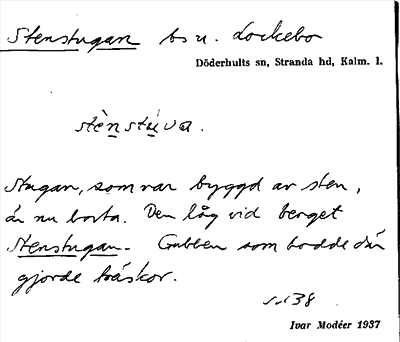 Stenstugan bs u. Lockebo
Döderhults sn, Stranda hd, Kalm. l.
stènstúva.
Stugan, som var byggd av sten,
är nu borta. Den låg vid berget
Stenstugan. Gubben som bodde där
gjorde träskor.
s. 138
Ivar Modéer 1937